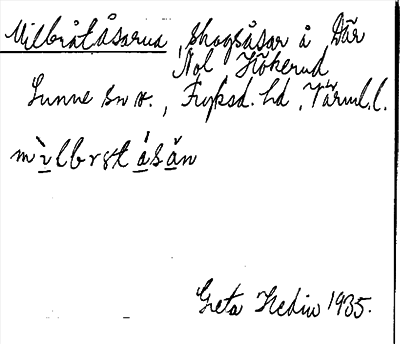 Milbråtåsarna, skogsåsar å Där
Nol Hökerud
Sunne sn v., Fryksd. hd, Värml.l.
mìlbrståsán
Greta Hedin 1935.